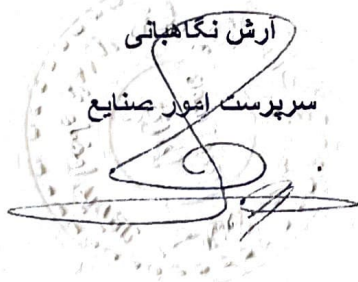 آرش نگاهبانی
سرپرست امور صنایع